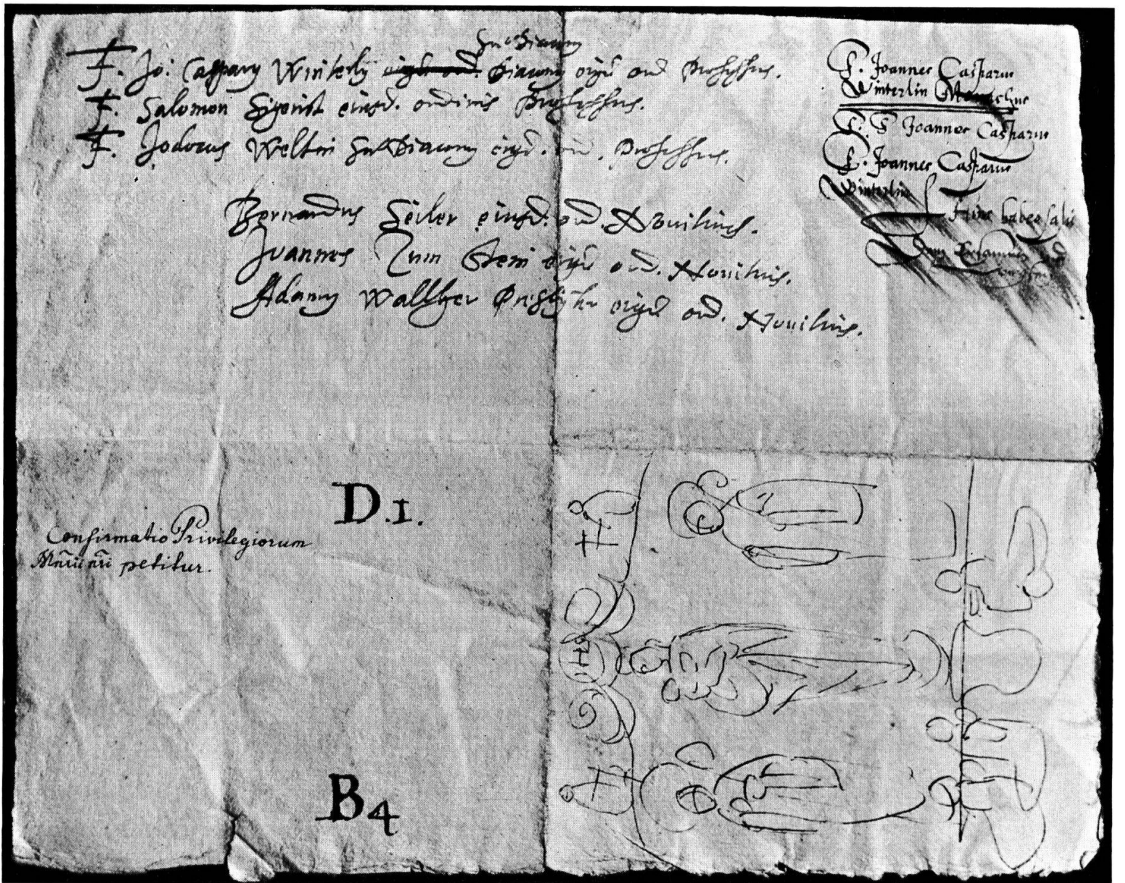 SubDiacony
F. Jo: Caspary Winterly Diacony eiusd ord Professus.
F. Salomon eiusd. ordinis Professus.
F. Jodocus Weltin SubDiacony eiusd. ord. Professus.
Bernardus Seiler eiusd. ord Novitius.
Joannes Zum Stein eiusd ord. Novitius.
Adamy Walther eiusd ord. Novitius.
F. Joannes Casparus
Winterlin
F. F Joannes Casparus
F. Joannes Casparus
Winterlin
D.1.
Confirmatio Privilegiorum
petitur.
B4